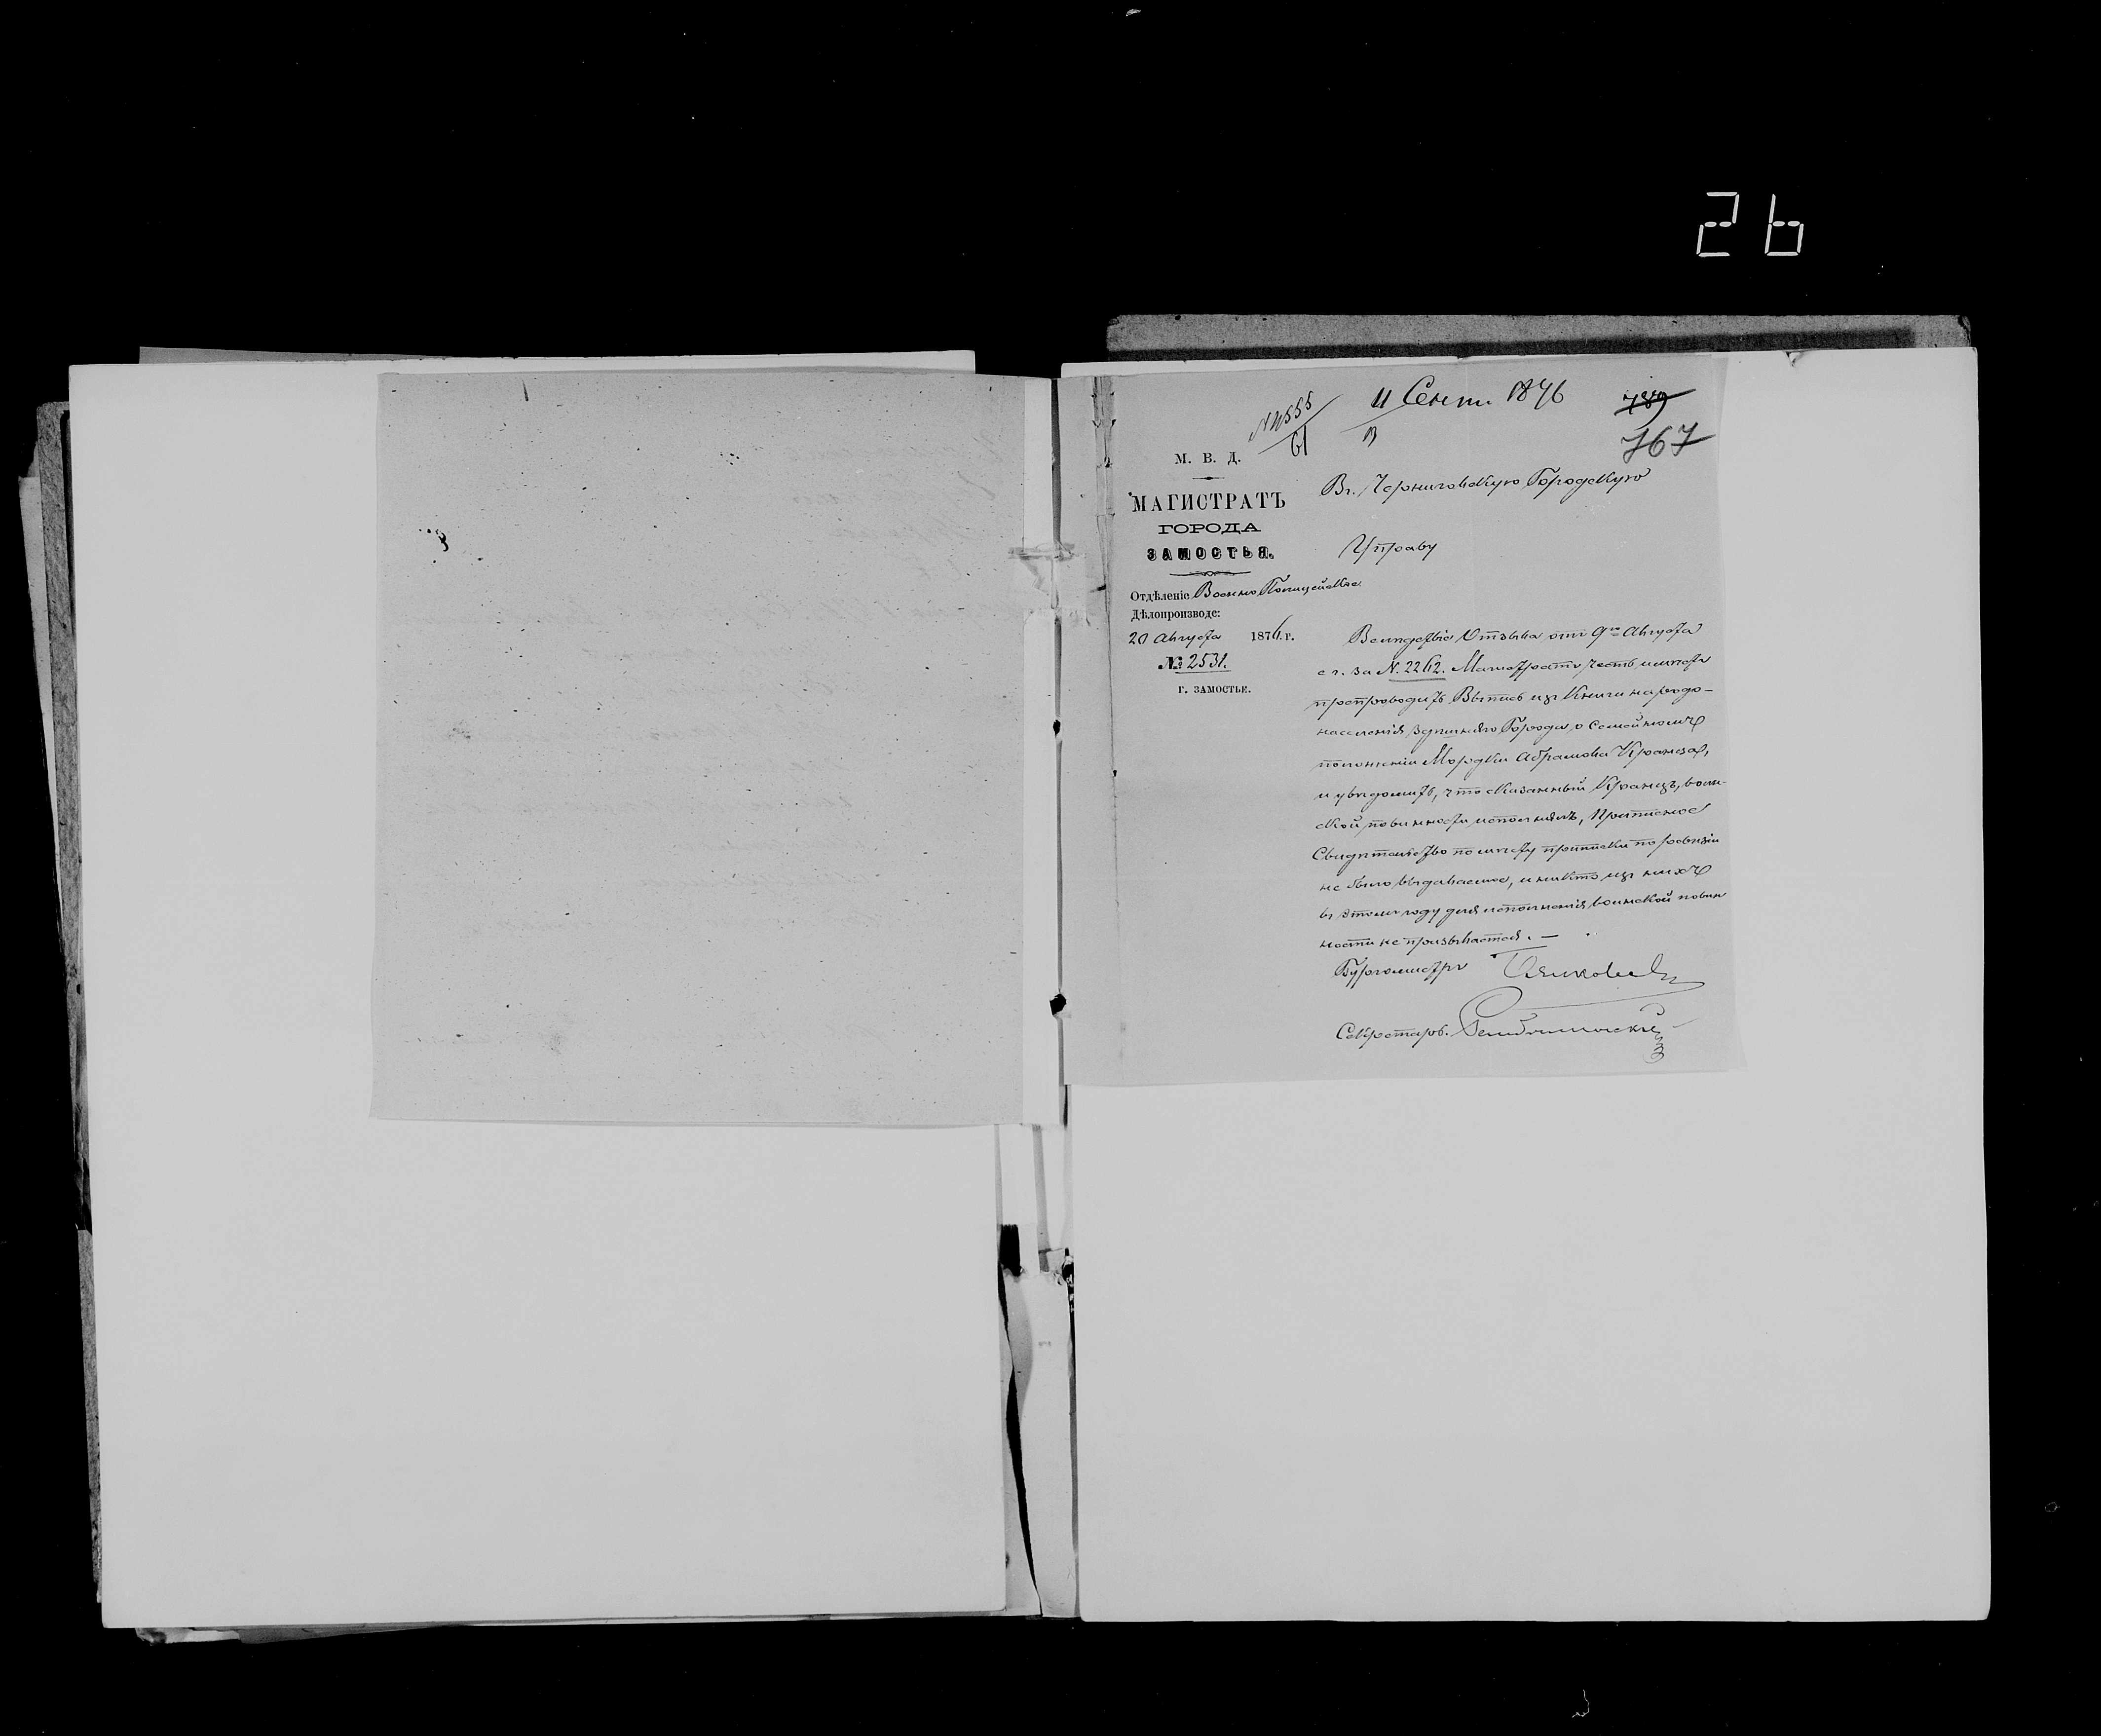 26
№ 4555
61
11 Сент. 1876
В
789
767
М. В. Д.
МАГИСТРАТЪ
ГОРОДА
ЗАМОСТЬЯ.
Отдѣленіе Военно Полицейское
Дѣлопроизводс:
20 Августа 1876 г.
№ 2531.
Г. ЗАМОСТЬЕ.
Въ Черниговскую Городскую
Управу
Вслѣдствіе Отзыва отъ 9го Августа
с. г. за N. 2262. Магистратъ честь имѣетъ
препроводить Выпись изъ Книги народо-
населенія здѣшняго Города, о Семейномъ
положеніи Мордки Абрамова Кранца,
и увѣдомить, что сказанный Кранцъ, воин-
ской повинности исполнялъ, Приписное
Свидѣтельство по мѣсту приписки по ревизіи
не было выдаваемое, и никто изъ нихъ
въ этомъ году для исполненія воинской повин
ности не призывается. —
Бургомистръ
Секретарь.